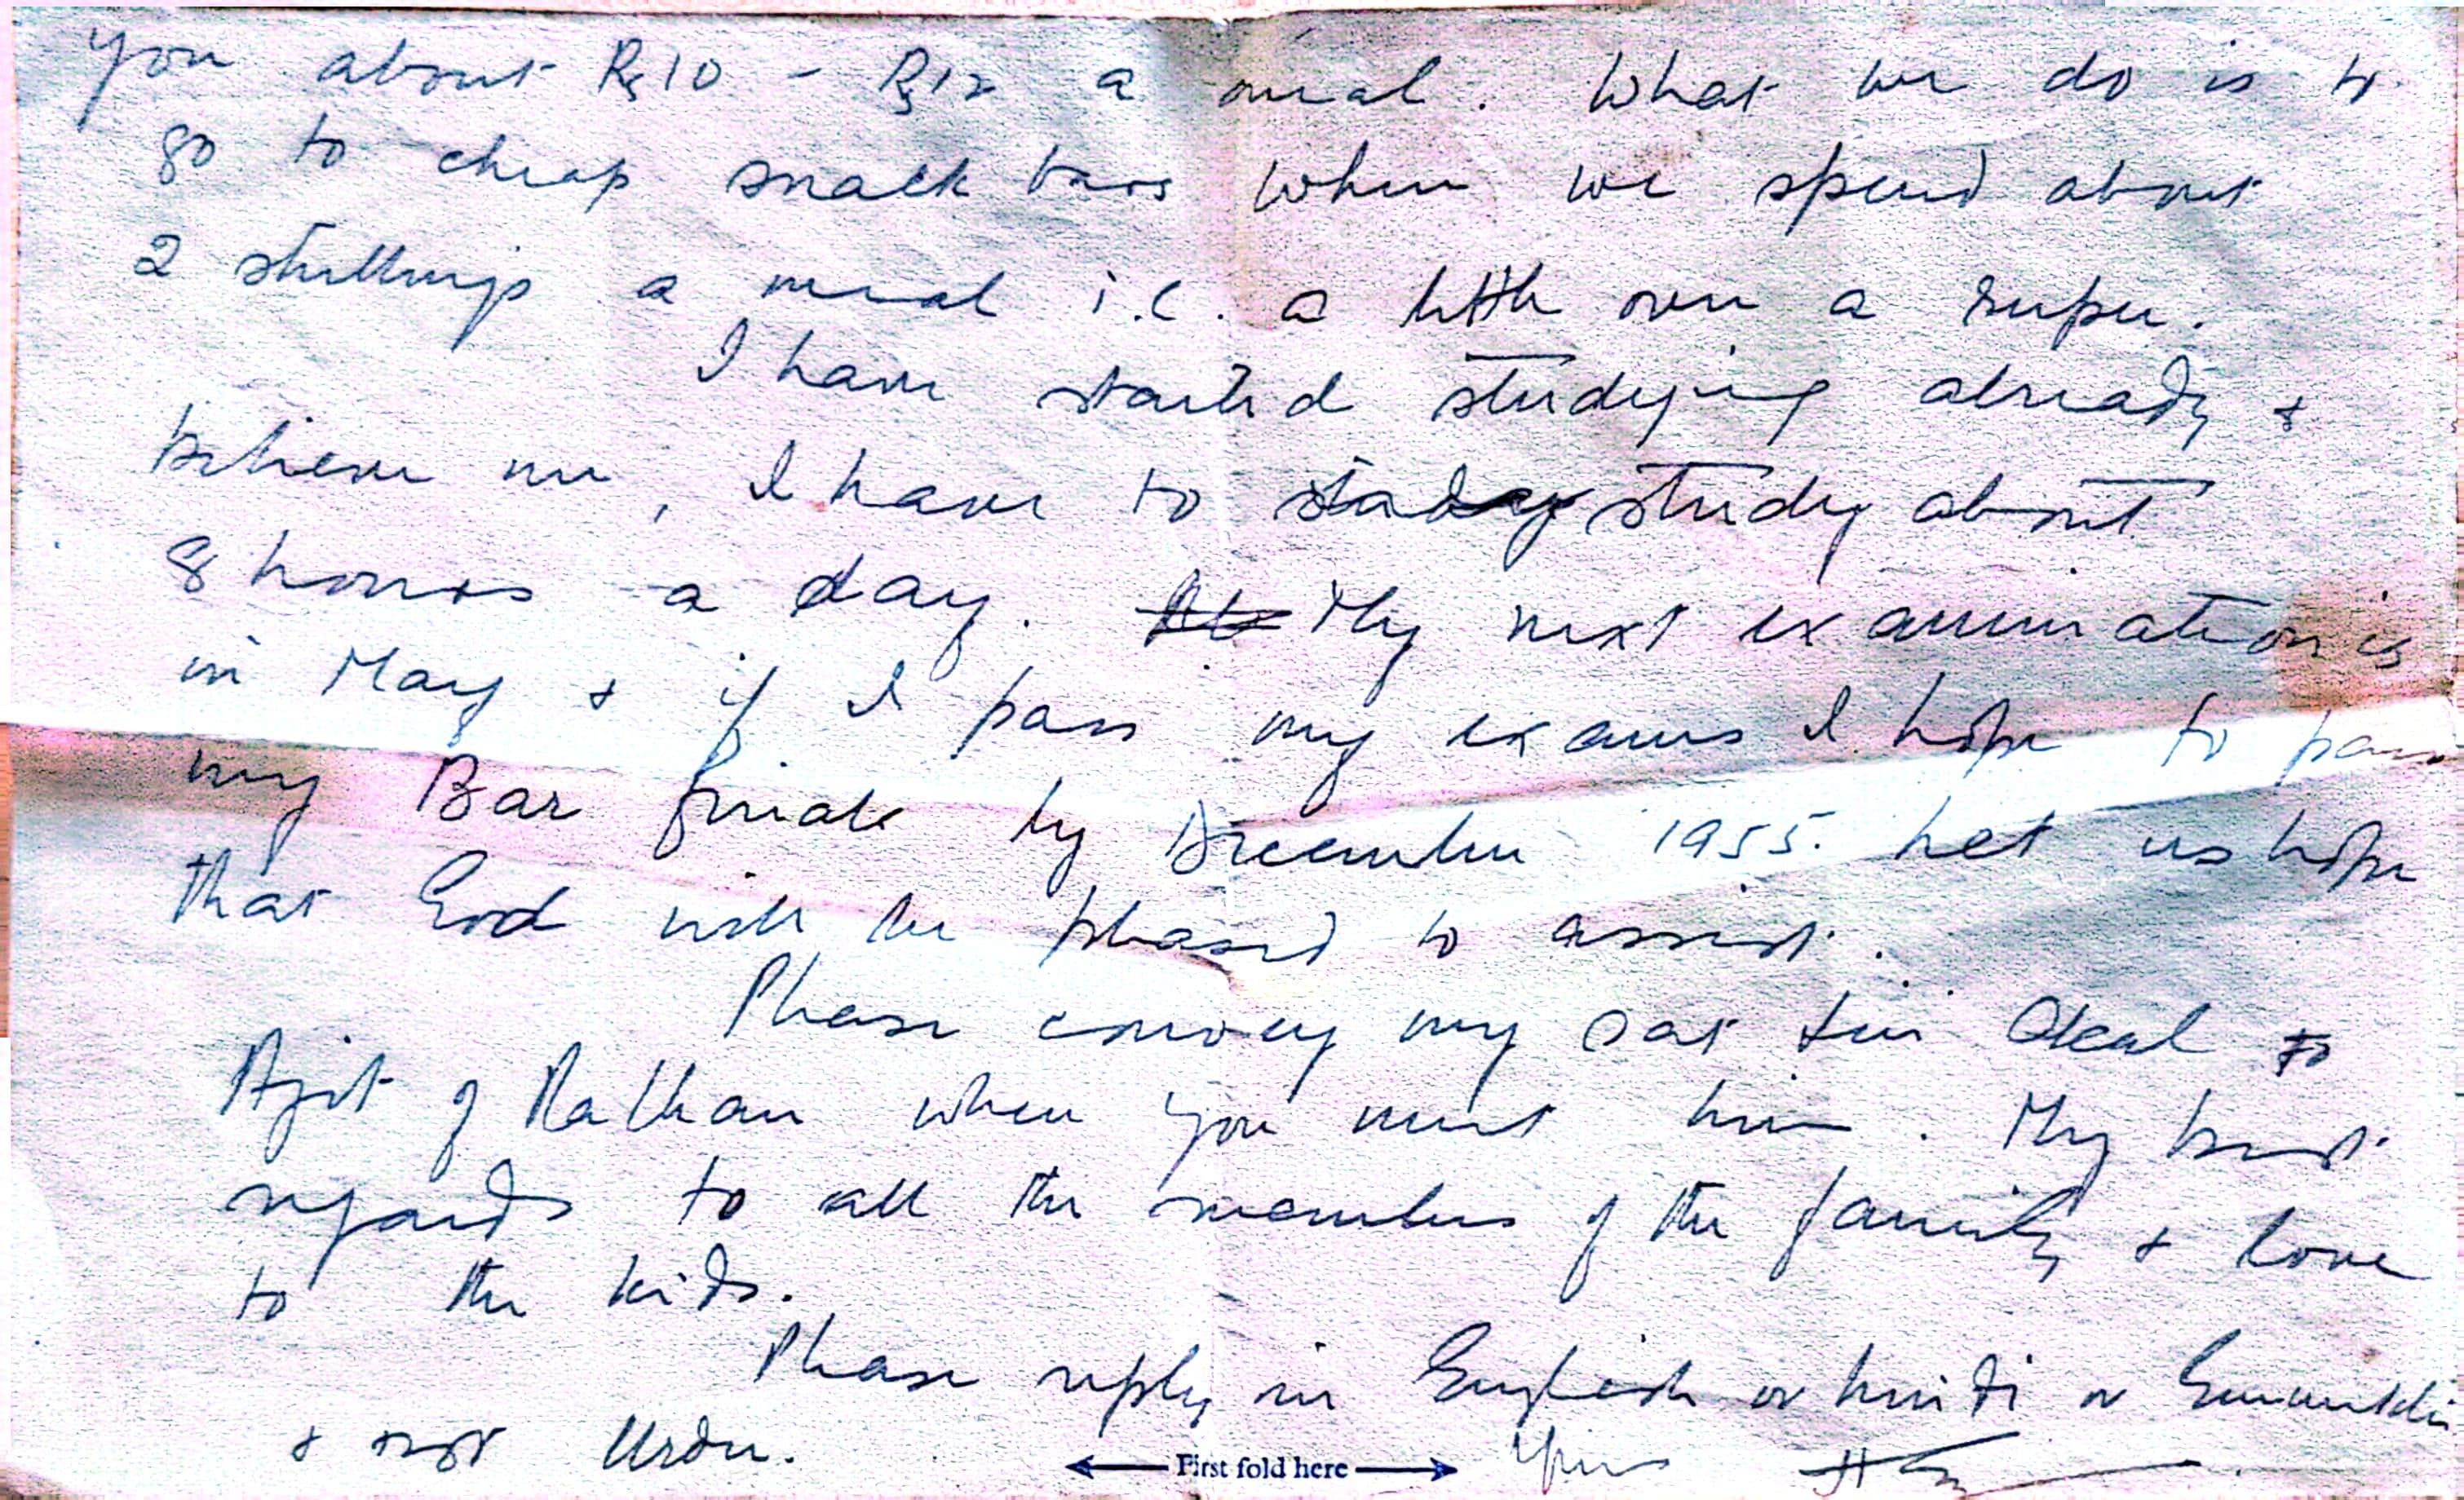 you about Rs10 - Rs12 a meal. What we do is to
go to cheap snack bars where we spend about
2 shillings a meal i.e. a little over a rupee.
I have started studying already &
believe me, I have to study about
8 hours a day. My next examination is
in May & if I pass my exams I hope to pass
my Bar finals by December 1955. Let us hope
that God will be pleased to assist.
Please convey my Sat Siri Akal to
Ajit of when you meet him. My best
regards to all the members of the family & love
to the kids.
Please reply in English or hindi or Gurmukhi
& not Urdu.
First fold here
Yours